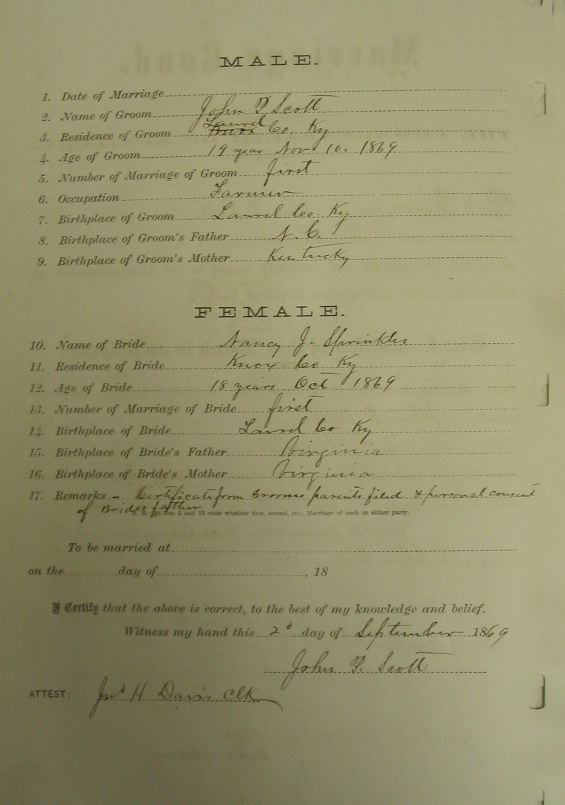 MALE.
1. Date of Marriage
2. Name of Groom John F. Scott
3. Residence of Groom Laurel Knox Co. Ky
4. Age of Groom 19 year Nov 10. 1869
5. Number of Marriage of Groom first
6. Occupation Farmer
7. Birthplace of Groom Laurel Co. Ky
8. Birthplace of Groom's Father N. C.
9. Birthplace of Groom's Mother Kentucky
FEMALE.
10. Name of Bride Nancy J. Sprinkles
11. Residence of Bride Knox Co Ky
12. Age of Bride 18 years Oct 1869
13. Number of Marriage of Bride first
14. Birthplace of Bride Laurel Co Ky
15. Birthplace of Bride's Father Virginia
16. Birthplace of Bride's Mother Virginia
17. Remarks - Certificate from Grooms parents filed & personal consent
of Brides father
5 and 13 state whether first, second, etc., Marriage of each or either party.
To be married at
on the day of , 18
I Certify that the above is correct, to the best of my knowledge and belief.
Witness my hand this 2d day of September 1869
John F. Scott
ATTEST: Jno H Davis Clk